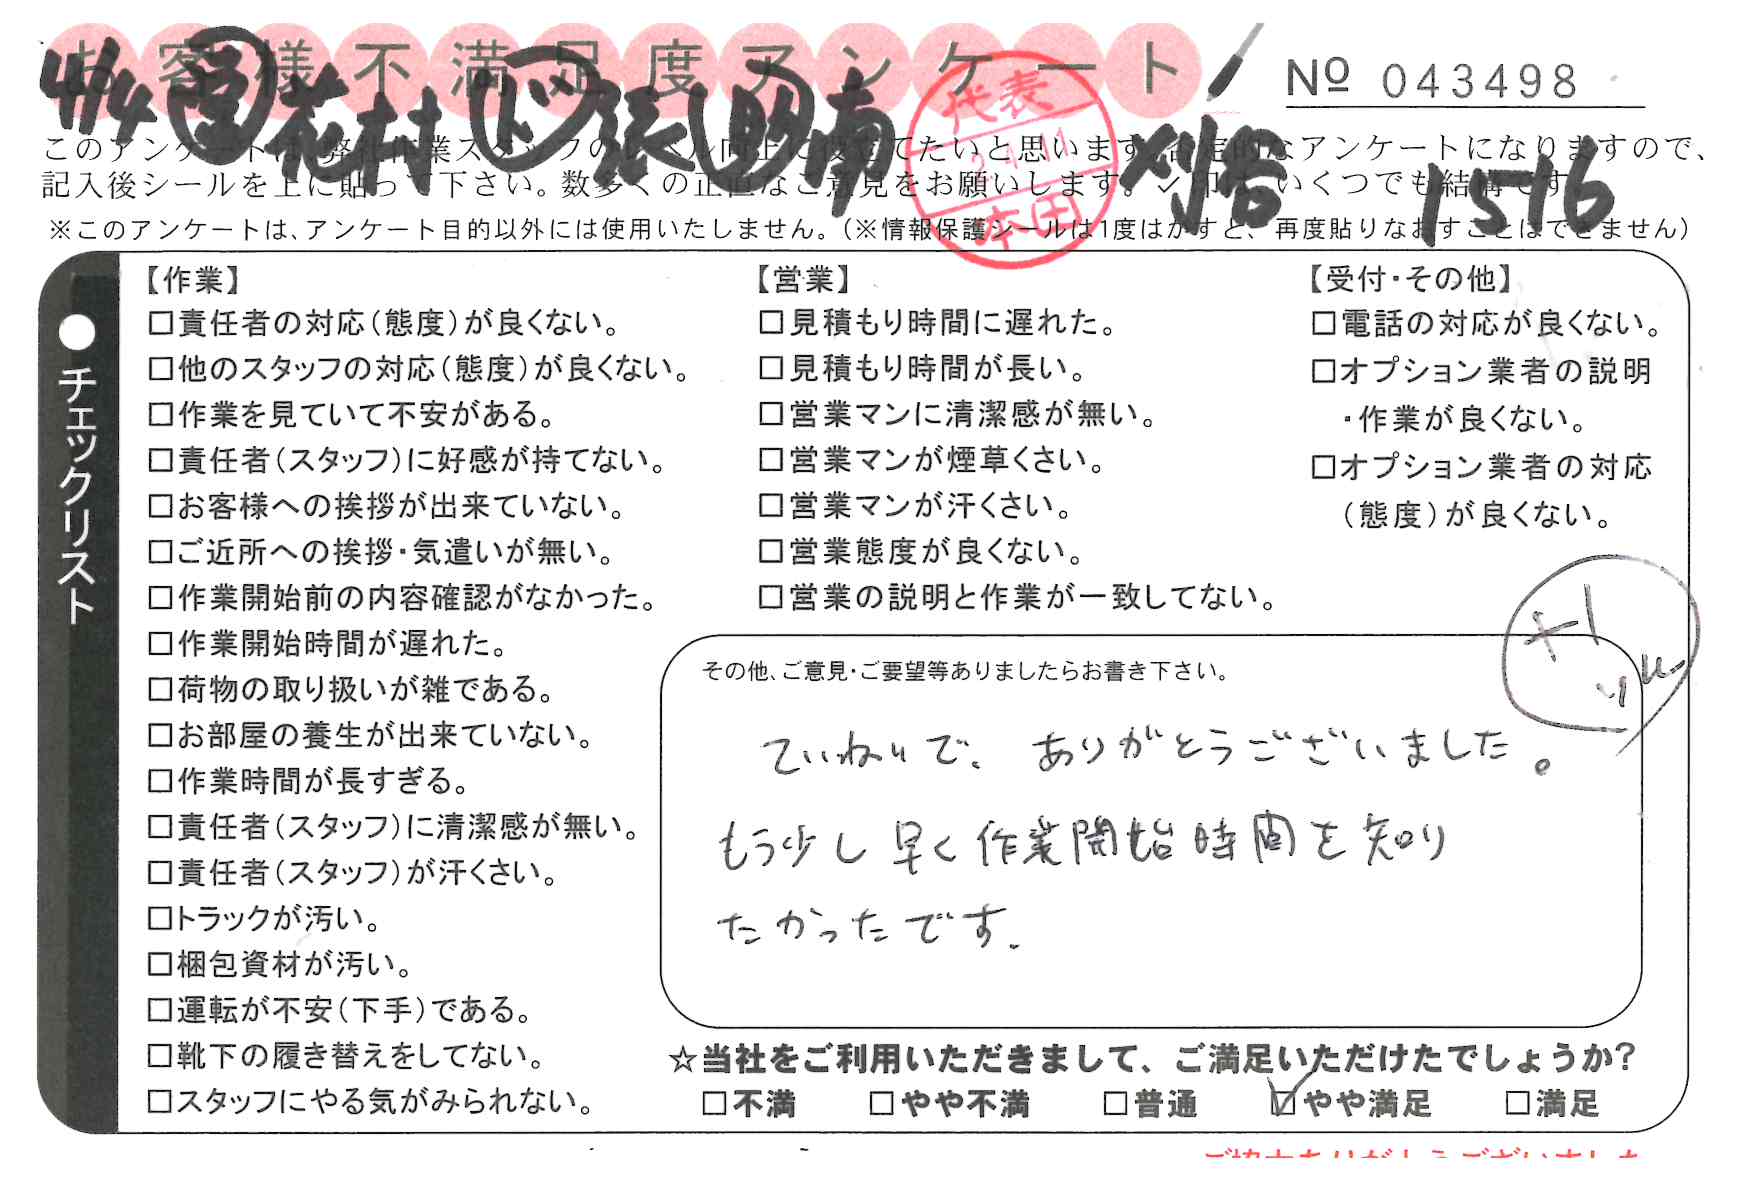 お客様不満足度アンケート
Nº 043498
4/4 花村
1576
代表
本田
このアンケートは、弊社作業スタッフのレベル向上に役立てたいと思います。否定的なアンケートになりますので、
記入後シールを上に貼って下さい。数多くの正直なご意見をお願いします。✓印は、いくつでも結構です。
※このアンケートは、アンケート目的以外には使用いたしません。(※情報保護シールは1度はがすと、再度貼りなおすことはできません)
●チェックリスト
【作業】
□責任者の対応(態度)が良くない。
□他のスタッフの対応(態度)が良くない。
□作業を見ていて不安がある。
□責任者(スタッフ)に好感が持てない。
□お客様への挨拶が出来ていない。
□ご近所への挨拶・気遣いが無い。
□作業開始前の内容確認がなかった。
□作業開始時間が遅れた。
□荷物の取り扱いが雑である。
□お部屋の養生が出来ていない。
□作業時間が長すぎる。
□責任者(スタッフ)に清潔感が無い。
□責任者(スタッフ)が汗くさい。
□トラックが汚い。
□梱包資材が汚い。
□運転が不安(下手)である。
□靴下の履き替えをしてない。
□スタッフにやる気がみられない。
【営業】
□見積もり時間に遅れた。
□見積もり時間が長い。
□営業マンに清潔感が無い。
□営業マンが煙草くさい。
□営業マンが汗くさい。
□営業態度が良くない。
□営業の説明と作業が一致してない。
【受付・その他】
□電話の対応が良くない。
□オプション業者の説明
・作業が良くない。
□オプション業者の対応
(態度)が良くない。
その他、ご意見・ご要望等ありましたらお書き下さい。
ていねいで、ありがとうございました。
もう少し早く作業開始時間を知り
たかったです.
☆当社をご利用いただきまして、ご満足いただけたでしょうか?
□不満 □やや不満 □普通 ☑やや満足 □満足
ご協力ありがとうございました